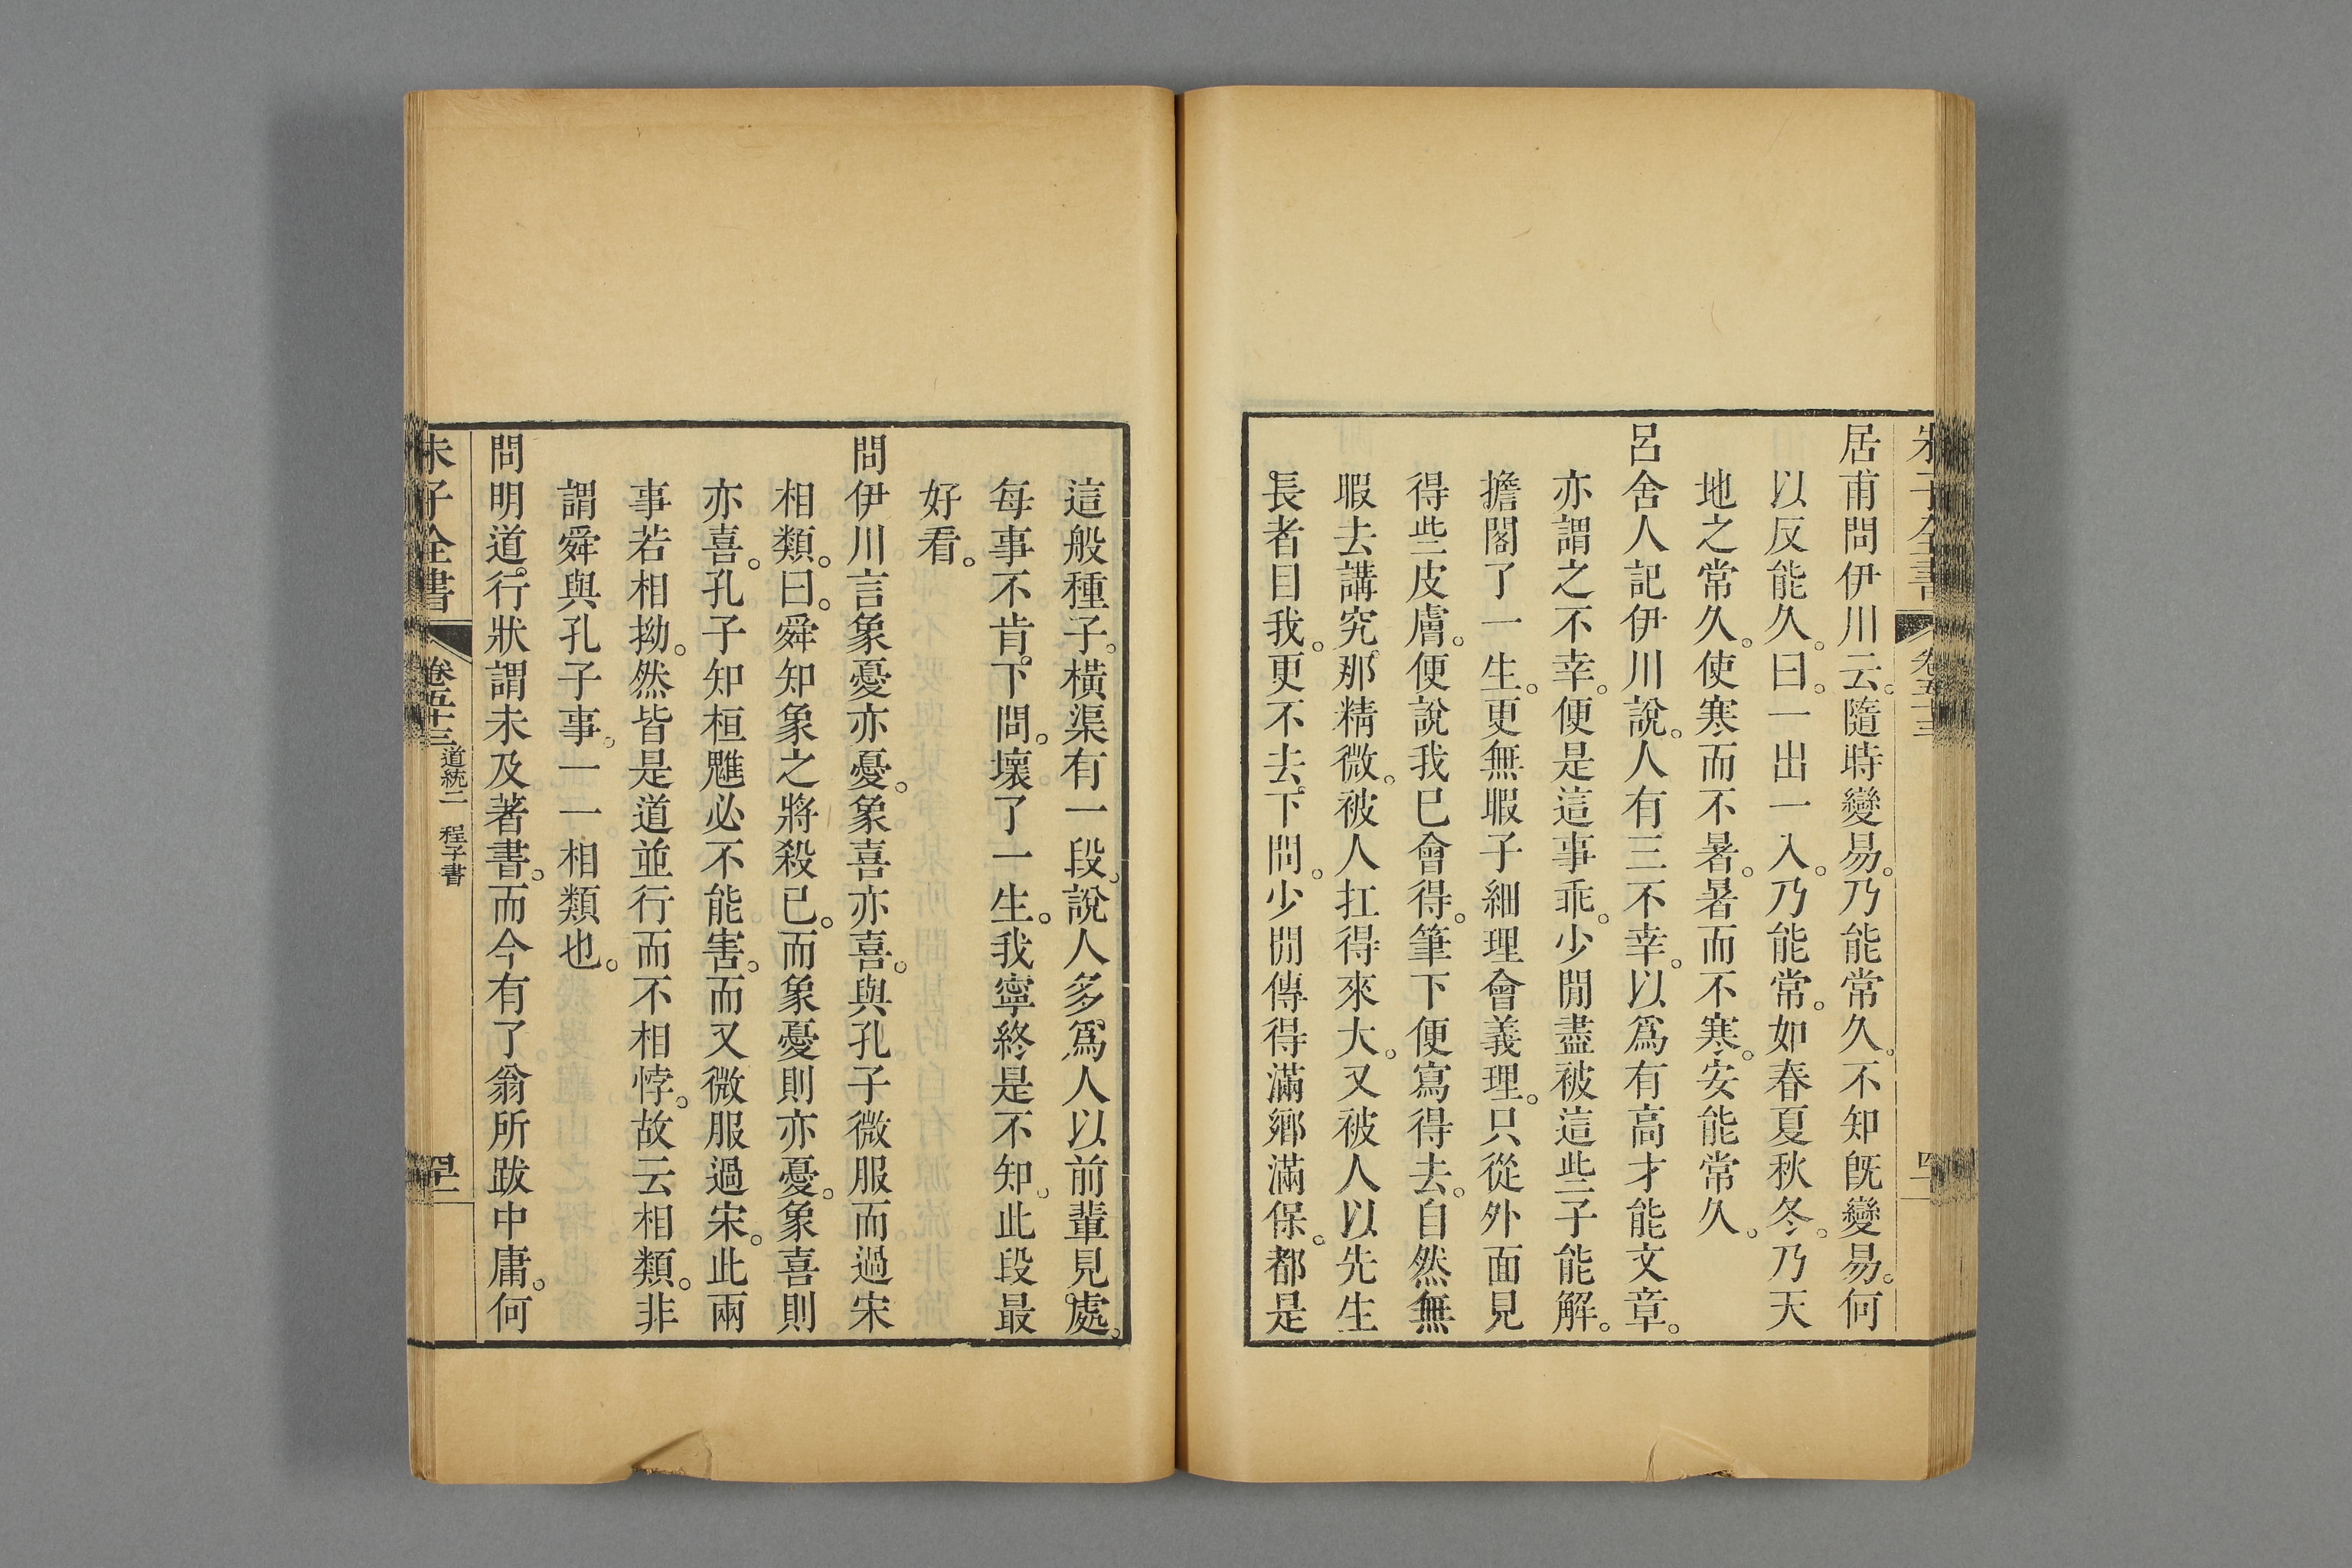 居甫問伊川云。隨時變易。乃能常久。不知旣變易。何
以反能久。曰。一出一入。乃能常。如春夏秋冬。乃天
地之常久。使寒而不暑。暑而不寒。安能常久。
呂舍人記伊川說。人有三不幸。以爲有高才能文章。
亦謂之不幸。便是這事乖。少閒盡被這些子能解。
擔閣了一生。更無暇子細理會義理。只從外面見
得些皮膚。便說我已會得。筆下便寫得去。自然無
暇去講究那精微。被人扛得來大。又被人以先生
長者目我。更不去下問。少閒傳得滿鄉滿保。都是
這般種子。橫渠有一段。說人多爲人以前輩見處。
每事不肯下問。壞了一生。我寧終是不知。此段最
好看。
問伊川言象憂亦憂。象喜亦喜。與孔子微服而過宋
相類。曰。舜知象之將殺已。而象憂則亦憂。象喜則
亦喜。孔子知桓魋必不能害。而又微服過宋。此兩
事若相拗。然皆是道並行而不相悖。故云相類。非
謂舜與孔子事。一一相類也。
問明道行狀謂未及著書。而今有了翁所跋中庸。何
朱子全書 卷五十三 道統二 程子書